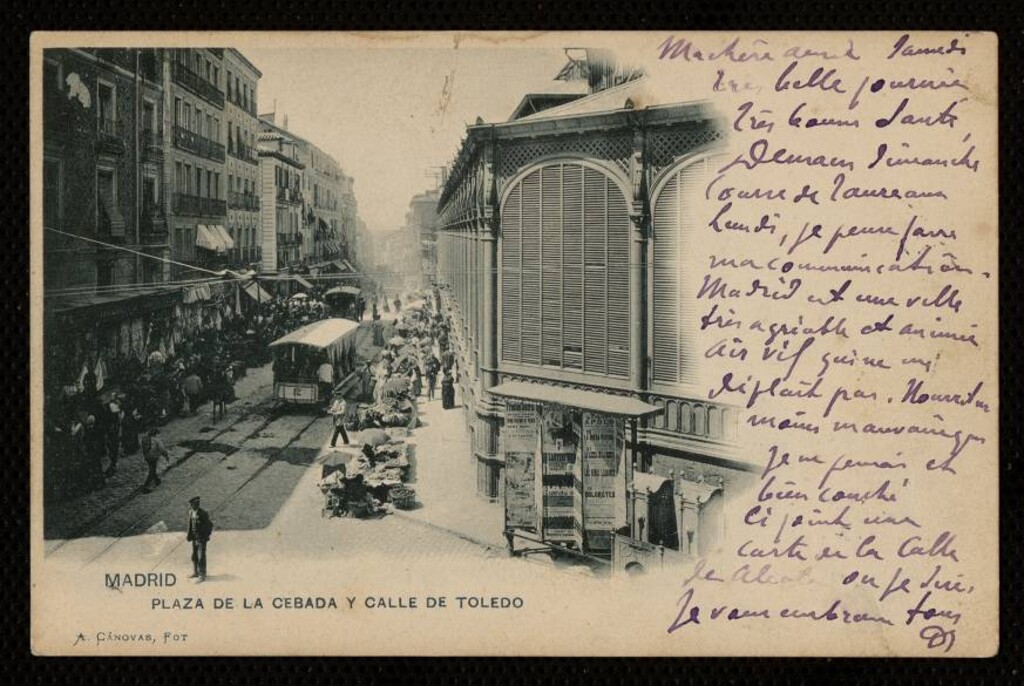 Ma chère amie Samedi
très belle journée
très bonne Santé,
Demain Dimanche
Course de Taureaux
Lundi, je pense faire
ma communication.
Madrid est une ville
très agréable et animée
air vif qui ne me
déplait pas. Nourriture
moins mauvaise que
je ne pensais et
bien couché
Ci joint une
carte de la Calle
de Alcala où je suis.
Je vous embrasse tous
MADRID
PLAZA DE LA CEBADA Y CALLE DE TOLEDO
A. CÁNOVAS, FOT